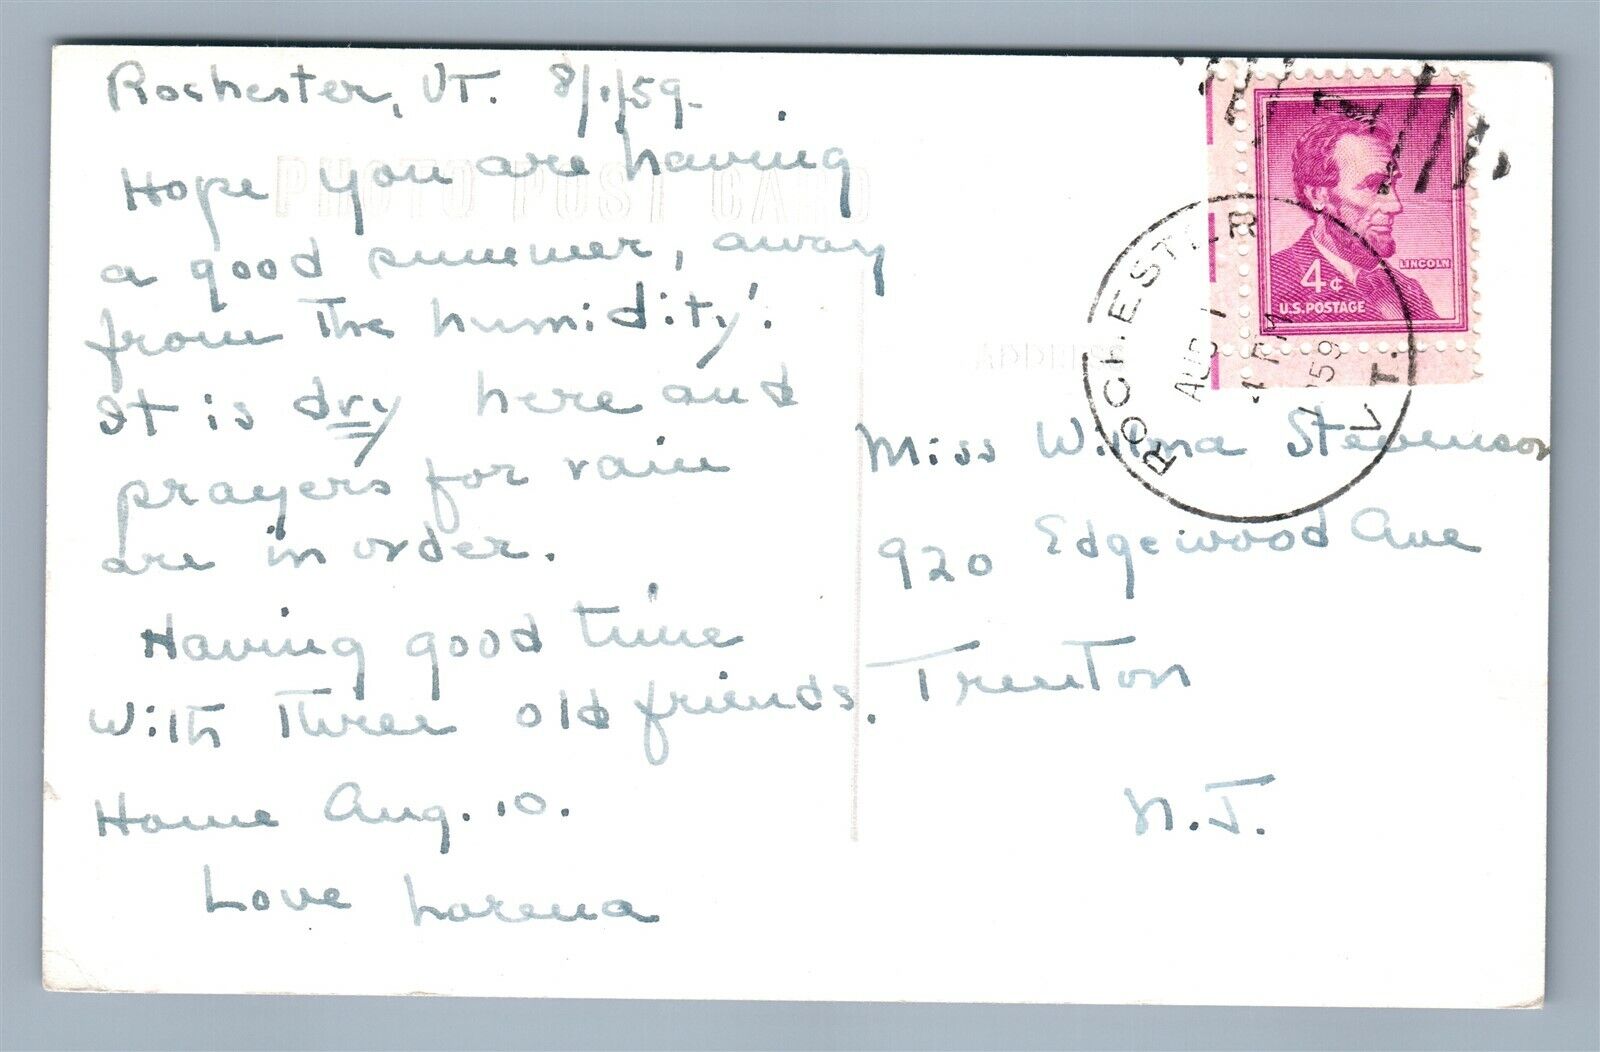 Rochester, VT. 8/1/59
Hope you are having
a good summer, away
from the humidity!
It is dry here and
prayers for rain
are in order.
Having good time
With three old friends.
Home Aug. 10.
Love Lorena
PHOTO POST CARD
ADDRESS
LINCOLN
4¢
U.S. POSTAGE
ROCHESTER
AUG 1
4 PM
1959
VT.
Miss Wilma Stevenson
920 Edgewood Ave
Trenton
N.J.